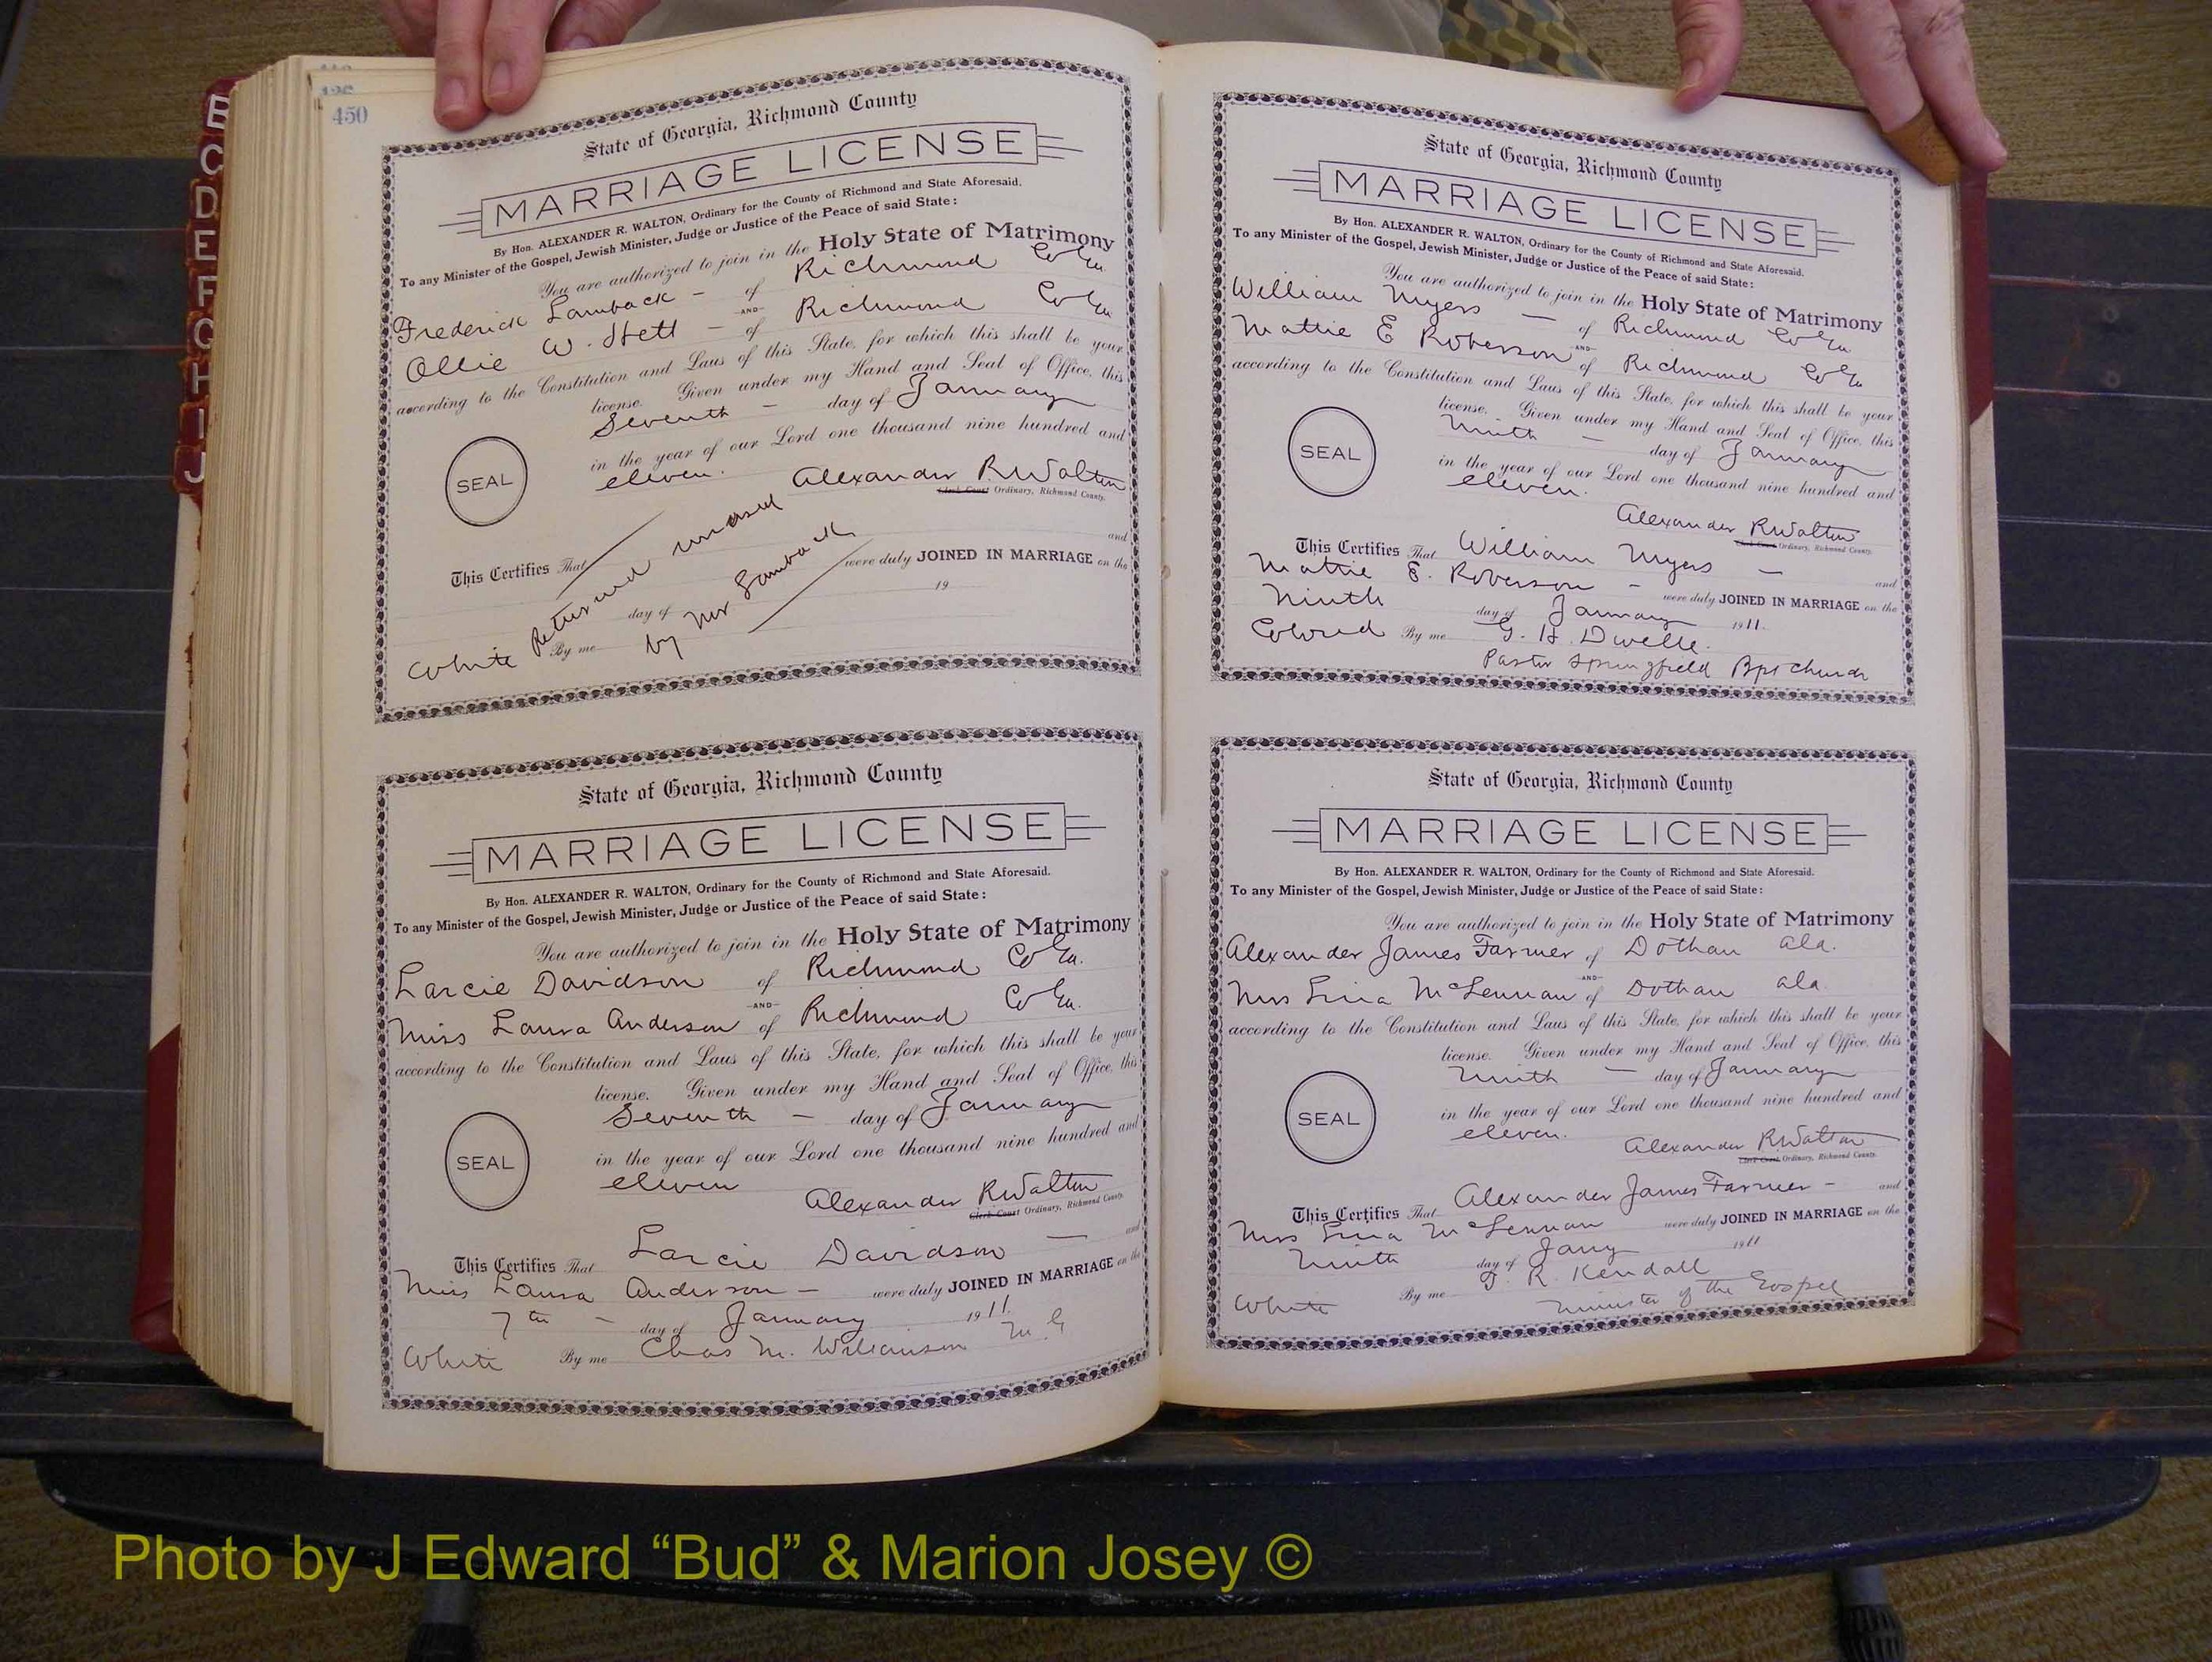 450
B
C
D
E
F
G
H
I
J
State of Georgia, Richmond County
MARRIAGE LICENSE
By Hon. ALEXANDER R. WALTON, Ordinary for the County of Richmond and State Aforesaid.
To any Minister of the Gospel, Jewish Minister, Judge or Justice of the Peace of said State:
You are authorized to join in the Holy State of Matrimony
Frederick Lamback - of Richmond Co Ga.
-AND-
Ollie W. Hett - of Richmond Co Ga
according to the Constitution and Laws of this State, for which this shall be your
license. Given under my Hand and Seal of Office, this
Seventh - day of January
in the year of our Lord one thousand nine hundred and
eleven.
SEAL
Alexander R. Walton
Clerk Court Ordinary, Richmond County.
This Certifies That and
were duly JOINED IN MARRIAGE on the
day of 19
Returned unused
by Mr Lamback
White By me
State of Georgia, Richmond County
MARRIAGE LICENSE
By Hon. ALEXANDER R. WALTON, Ordinary for the County of Richmond and State Aforesaid.
To any Minister of the Gospel, Jewish Minister, Judge or Justice of the Peace of said State:
You are authorized to join in the Holy State of Matrimony
Larcie Davidson of Richmond Co Ga.
-AND-
Miss Laura Anderson of Richmond Co Ga.
according to the Constitution and Laws of this State, for which this shall be your
license. Given under my Hand and Seal of Office, this
Seventh - day of January
in the year of our Lord one thousand nine hundred and
eleven
SEAL
Alexander R Walton
Clerk Court Ordinary, Richmond County.
This Certifies That Larcie Davidson - and
Miss Laura Anderson - were duly JOINED IN MARRIAGE on the
7th - day of January 1911.
White By me Chas M. Williamson M.G
State of Georgia, Richmond County
MARRIAGE LICENSE
By Hon. ALEXANDER R. WALTON, Ordinary for the County of Richmond and State Aforesaid.
To any Minister of the Gospel, Jewish Minister, Judge or Justice of the Peace of said State:
You are authorized to join in the Holy State of Matrimony
William Myers - of Richmond Co Ga
-AND-
Mattie E Roberson of Richmond Co Ga
according to the Constitution and Laws of this State, for which this shall be your
license. Given under my Hand and Seal of Office, this
Ninth - day of January
in the year of our Lord one thousand nine hundred and
eleven.
SEAL
Alexander R Walton
Clerk Court Ordinary, Richmond County.
This Certifies That William Myers - and
Mattie E. Roberson - were duly JOINED IN MARRIAGE on the
Ninth day of January 1911.
Colored By me G. H. Dwelle.
Pastor Springfield Bpt church
State of Georgia, Richmond County
MARRIAGE LICENSE
By Hon. ALEXANDER R. WALTON, Ordinary for the County of Richmond and State Aforesaid.
To any Minister of the Gospel, Jewish Minister, Judge or Justice of the Peace of said State:
You are authorized to join in the Holy State of Matrimony
Alexander James Farmer of Dothan Ala.
-AND-
Miss McLennan of Dothan Ala.
according to the Constitution and Laws of this State, for which this shall be your
license. Given under my Hand and Seal of Office, this
Ninth - day of January
in the year of our Lord one thousand nine hundred and
eleven.
SEAL
Alexander R Walton
Clerk Court Ordinary, Richmond County.
This Certifies That Alexander James Farmer - and
Miss McLennan were duly JOINED IN MARRIAGE on the
Ninth day of Jany 1911
White By me T. R. Kendall
Minister of the Gospel
Photo by J Edward “Bud” & Marion Josey ©